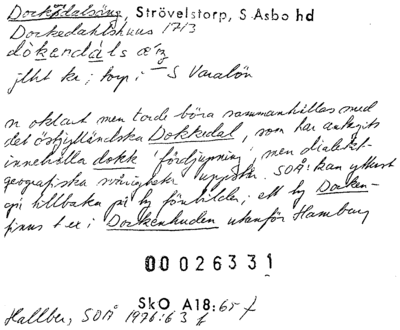 Dockedalsäng, Strövelstorp, S Åsbo hd
Dockedahlshuus 1713
dòkəndàls
i S Varalöv
oklart men torde böra sammanhållas med
det östjylländska Dokkedal, som har antagits
innehålla dokk 'fördjupning', men dialekt-
geografiska svårigheter uppstår. SOÅ: kan ytterst
gå tillbaka på by förebilden; ett by Docken-
finns t ex i Dockenhuden utanför Hamburg
00026331
SkO A18:65 f
Hallberg, SOÅ 1976:63 f